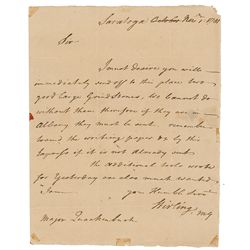 Saratoga October Nov.r 1. 1781
Sir
I must desire you will
immediately send off to this place two
good large Grindstones, we cannot do
without them therefore if they are in
Albany they must be sent. remember
send the writing paper &c by this
Express if it is not already sent.
the additional tools wrote
for yesterday are also much wanted.
I am
your Humble Servt
Stirling, MG
Major Quackenbush